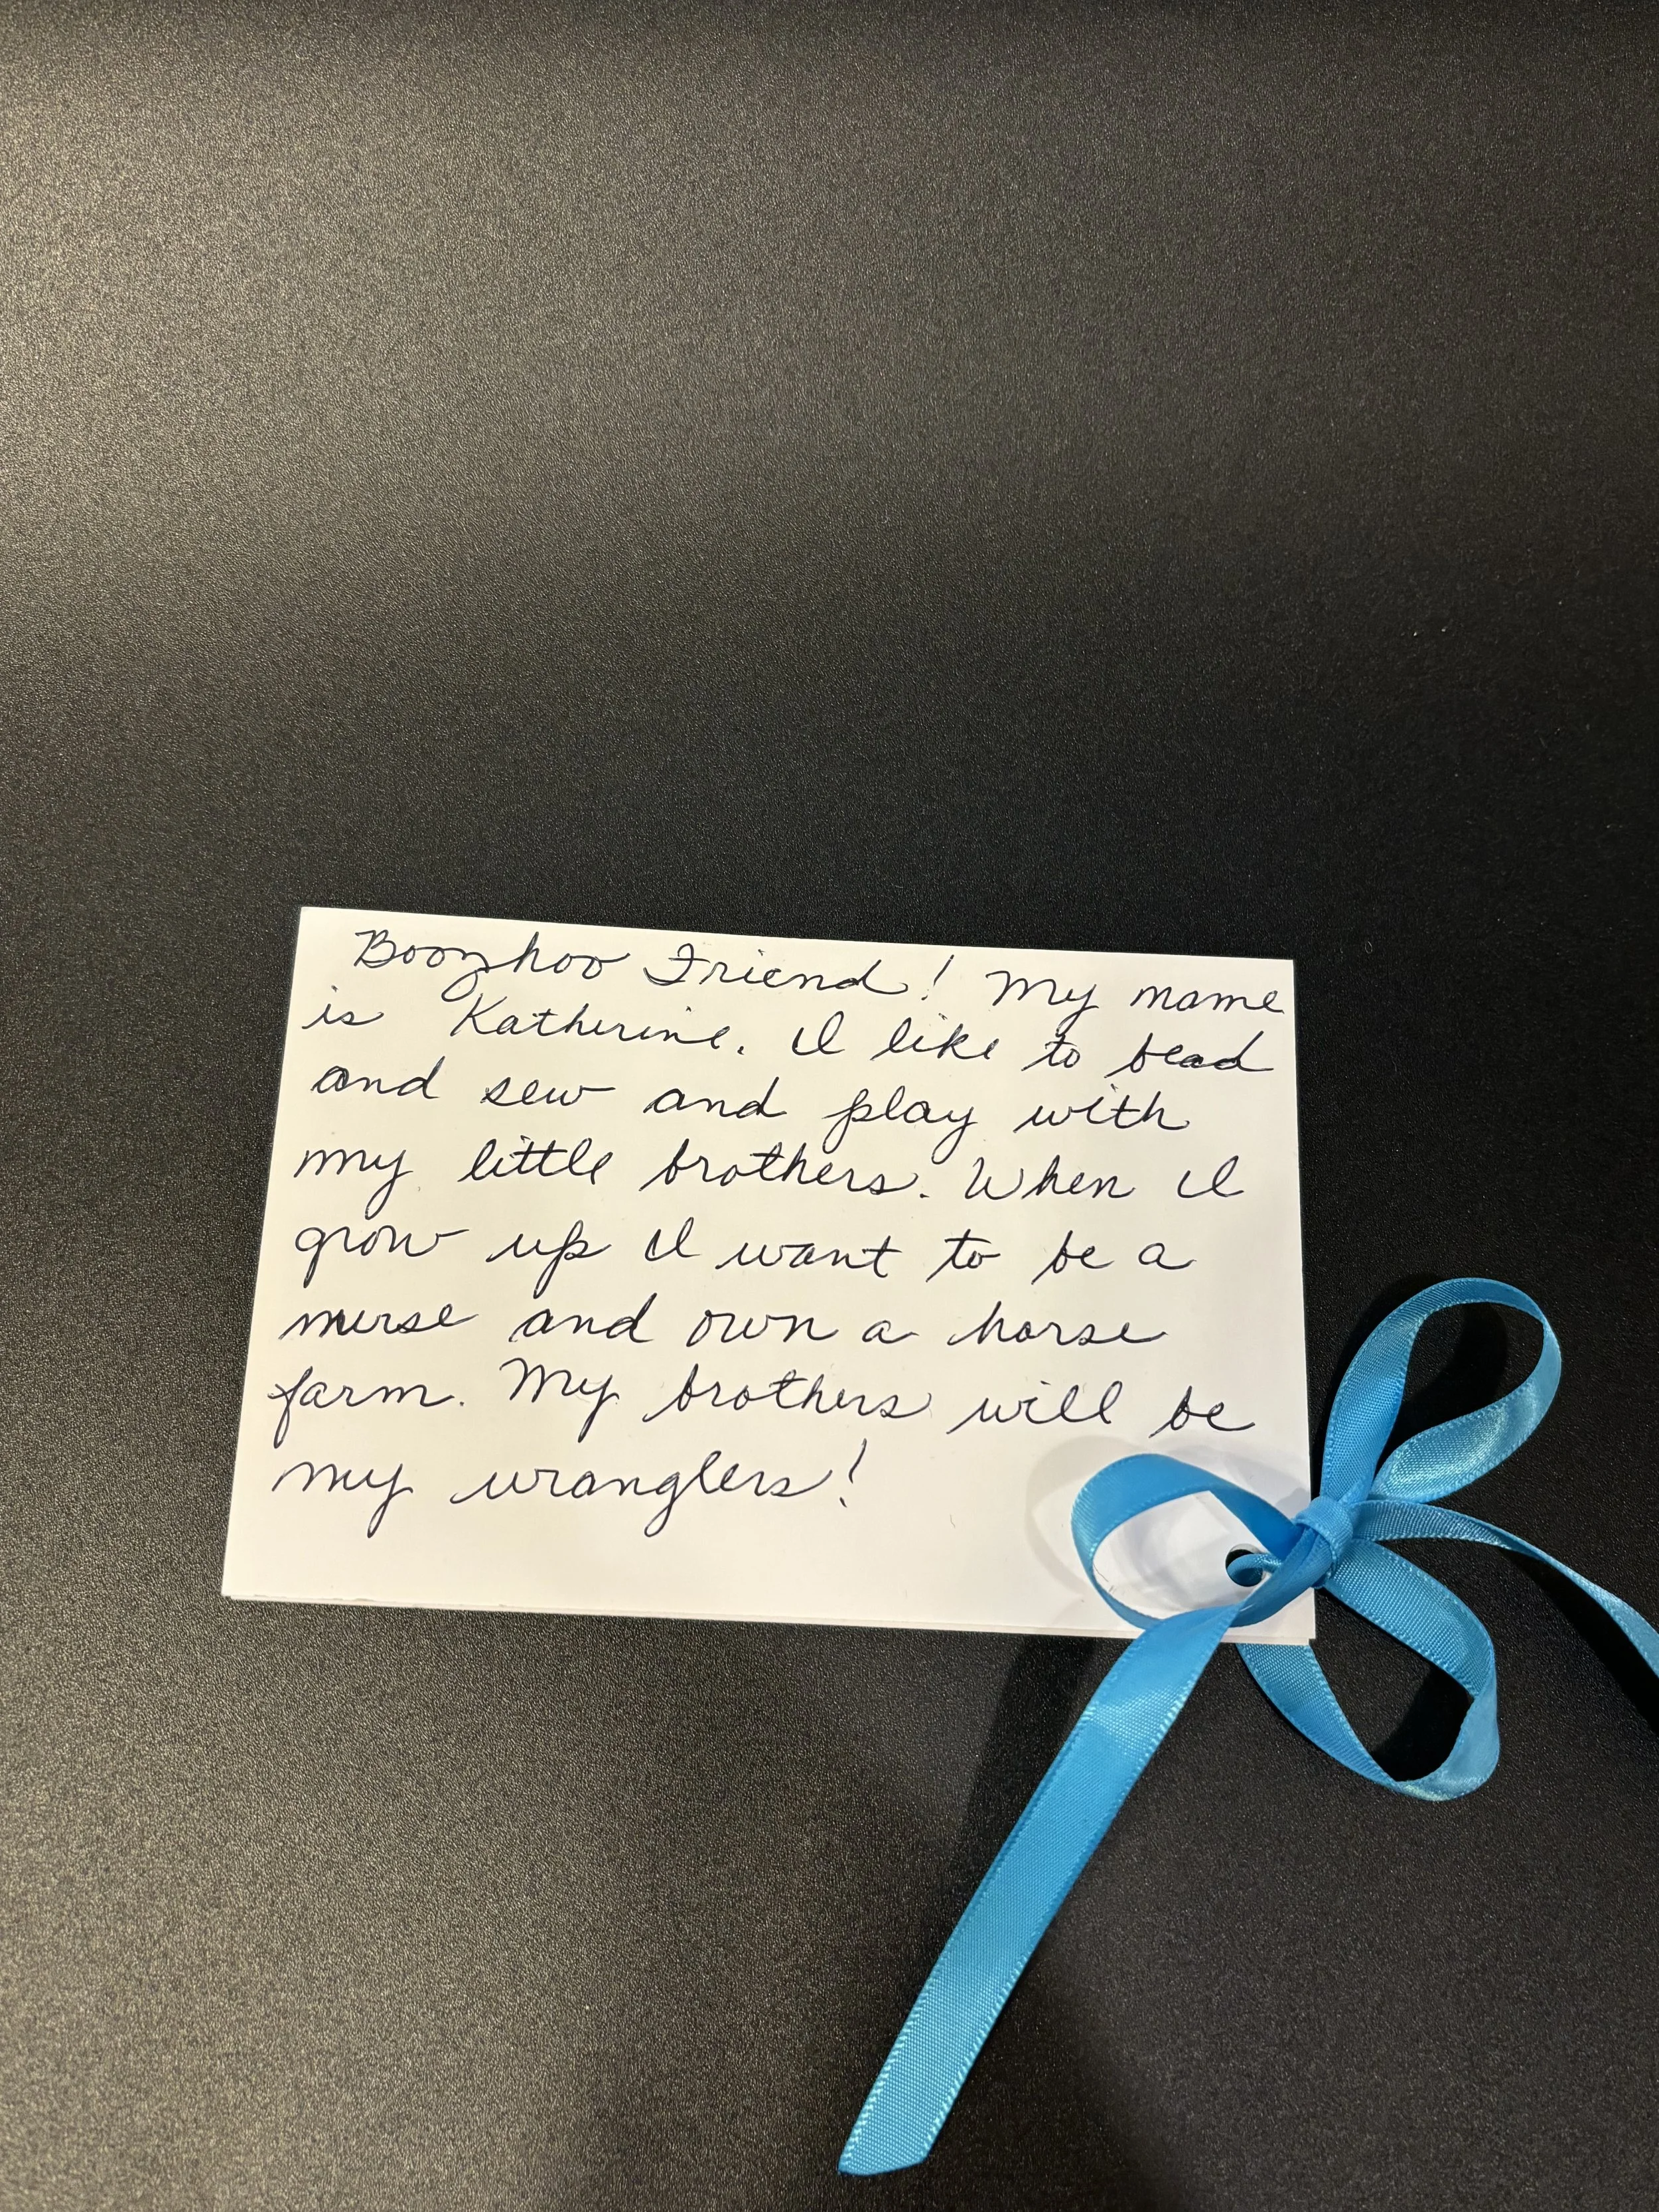 Boozhoo Friend! My name
is Katherine. I like to bead
and sew and play with
my little brothers. When I
grow up I want to be a
nurse and own a horse
farm. My brothers will be
my wranglers!